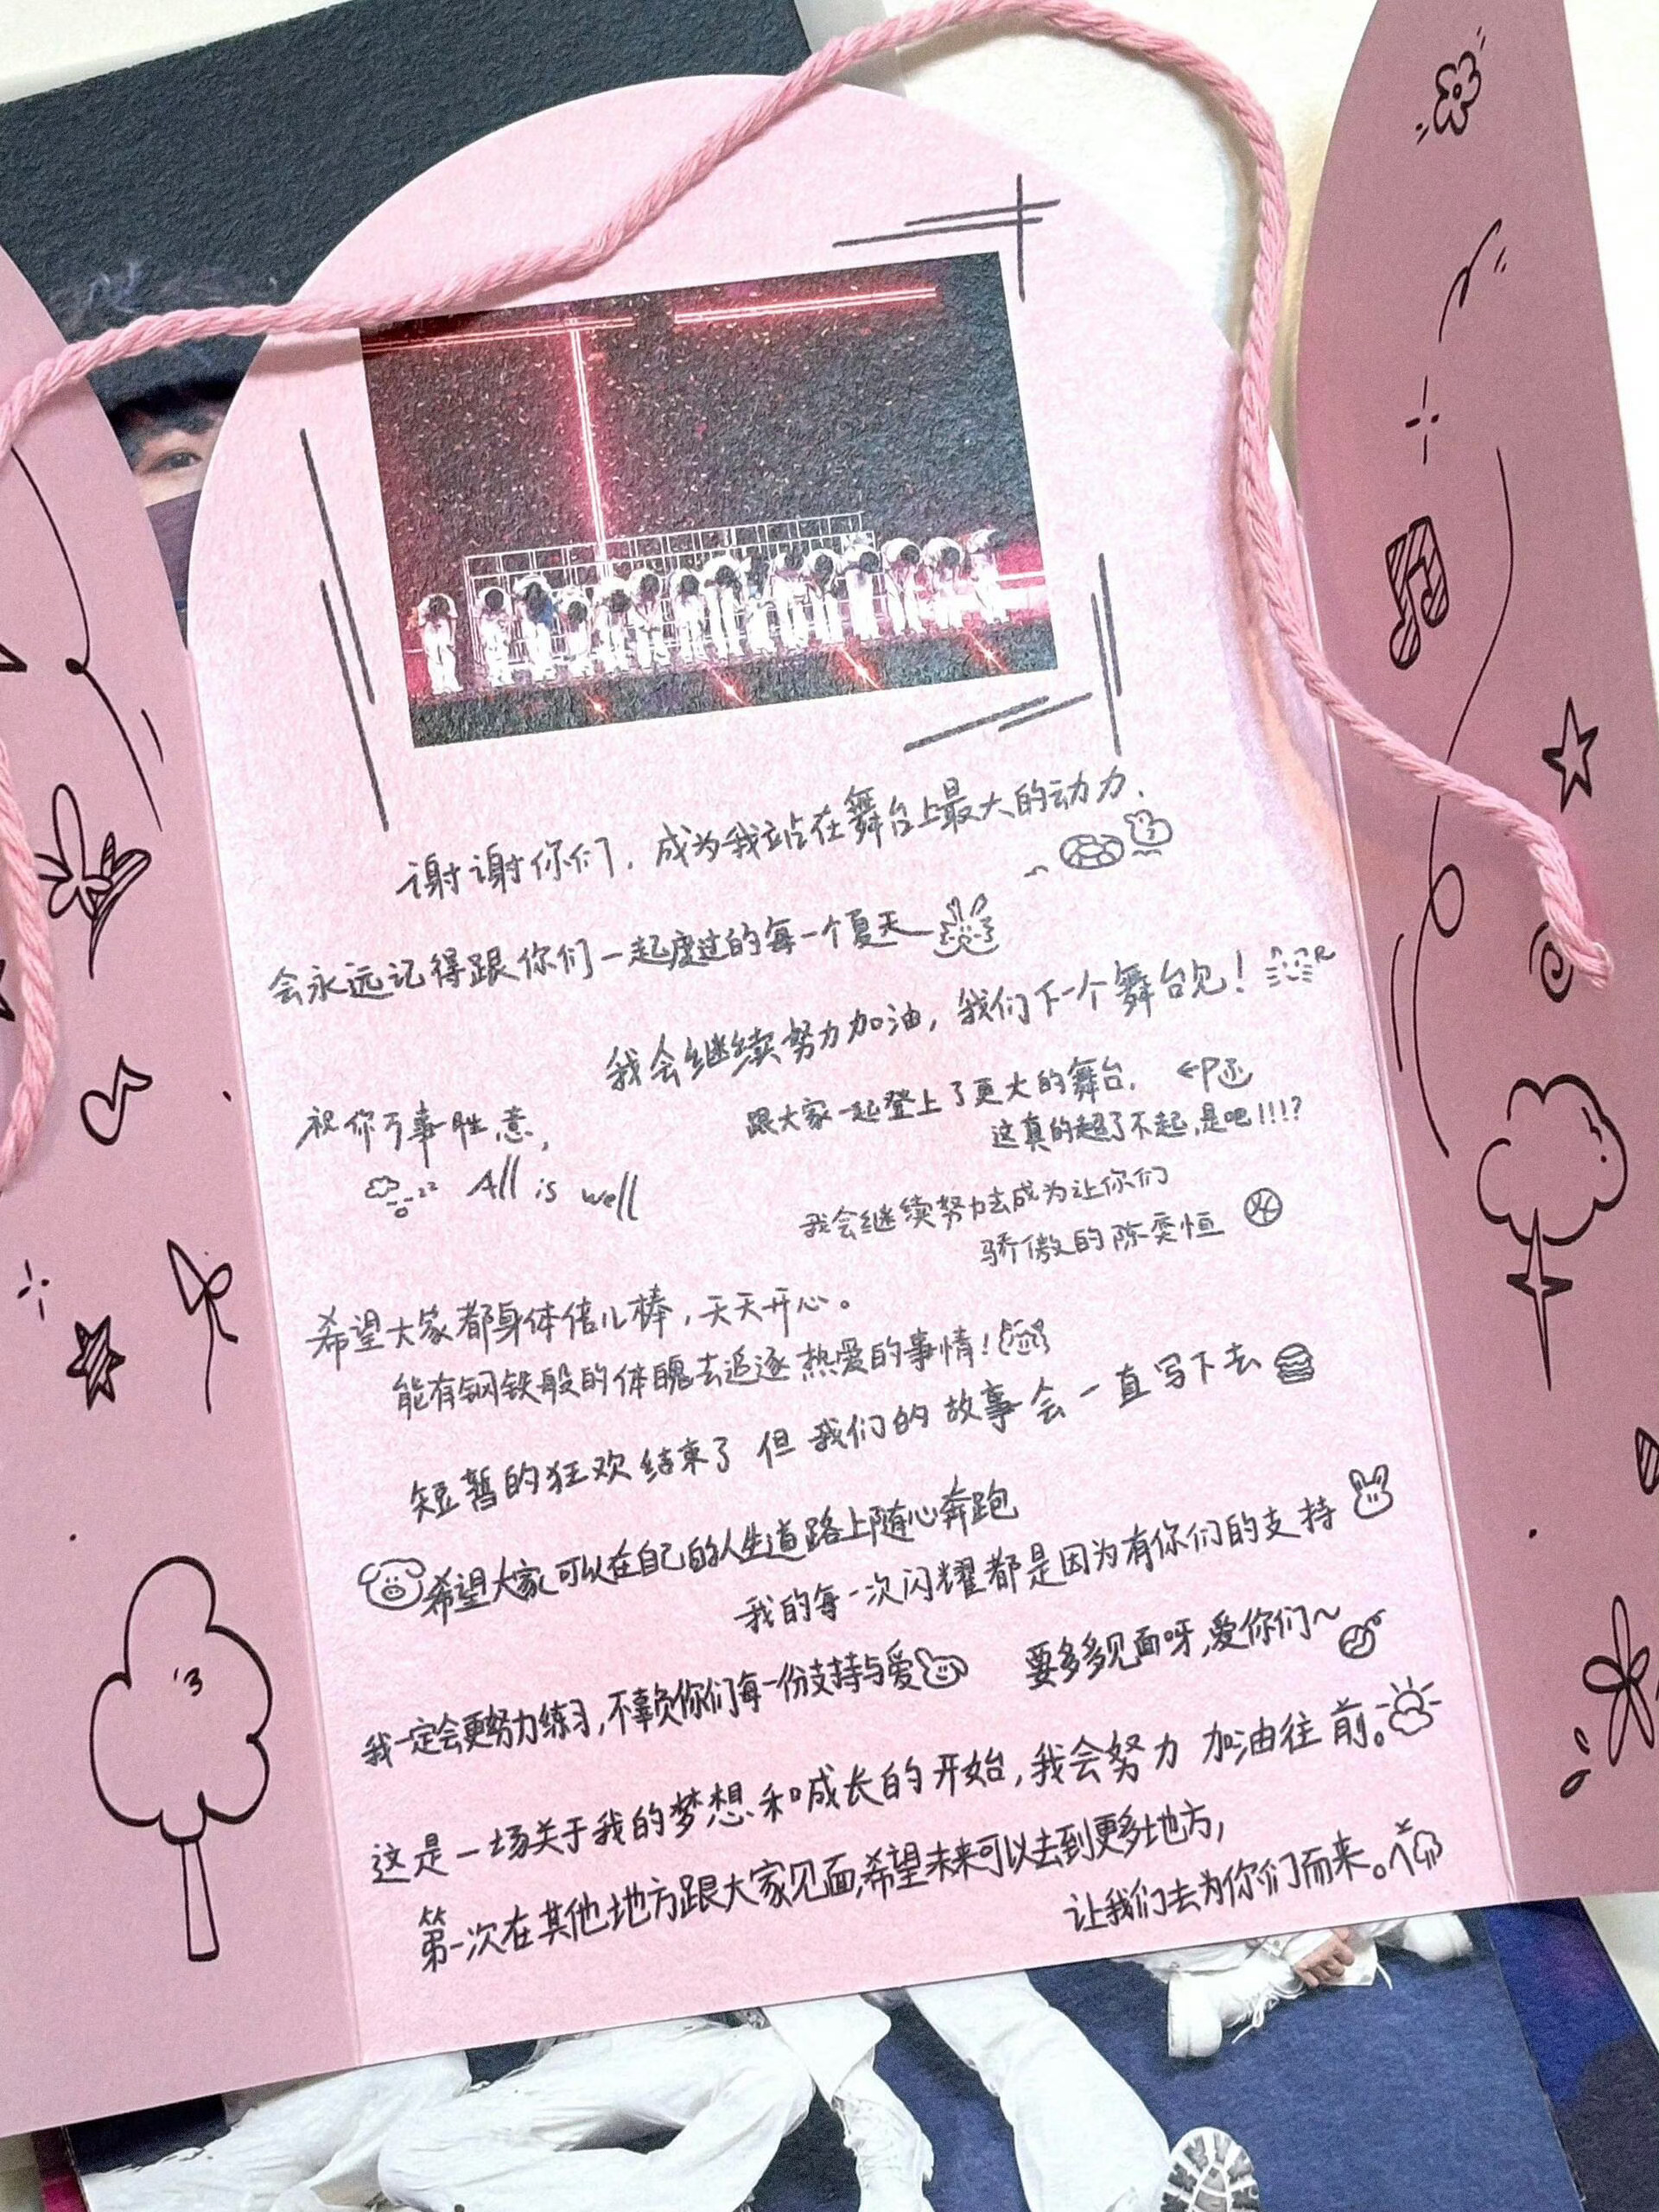 谢谢你们，成为我站在舞台上最大的动力、
会永远记得跟你们一起度过的每一个夏天
我会继续努力加油，我们下一个舞台见！
跟大家一起登上了更大的舞台，
这真的超了不起，是吧!!!?
祝你万事胜意，
All is well
我会继续努力去成为让你们
骄傲的陈奕恒
希望大家都身体倍儿棒，天天开心。
能有钢铁般的体魄去追逐热爱的事情！
短暂的狂欢结束了 但我们的故事会一直写下去
希望大家可以在自己的人生道路上随心奔跑
我的每一次闪耀都是因为有你们的支持
我一定会更努力练习，不辜负你们每一份支持与爱
要多多见面呀，爱你们~
这是一场关于我的梦想和成长的开始，我会努力加油往前。
第一次在其他地方跟大家见面，希望未来可以去到更多地方，
让我们去为你们而来。